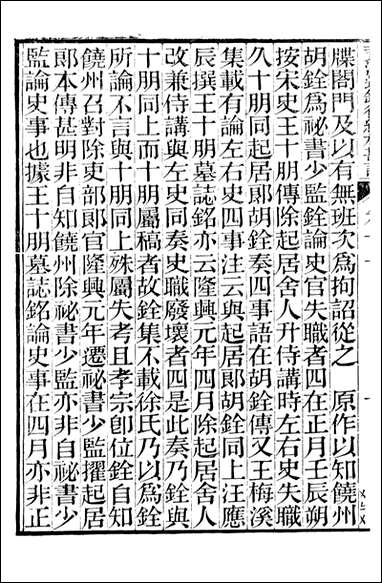 牒閤門及以有無班次爲拘詔從之　原作以知饒州
胡銓爲祕書少監銓論史官失職者四在正月壬辰朔
按宋史王十朋傳除起居舍人升侍講時左右史失職
久十朋同起居郞胡銓奏四事語在胡銓傳又王梅溪
集載有論左右史四事注云與起居郞胡銓同上汪應
辰撰王十朋墓誌銘亦云隆興元年四月除起居舍人
改兼侍講與左史同奏史職廢壞者四是此奏乃銓與
十朋同上而十朋屬稿者故銓集不載徐氏乃以爲銓
所論不言與十朋同上殊屬失考且孝宗卽位銓自知
饒州召對除吏部郞官隆興元年遷祕書少監擢起居
郞本傳甚明非自知饒州除祕書少監亦非自祕書少
監論史事也據王十朋墓誌銘論史事在四月亦非正